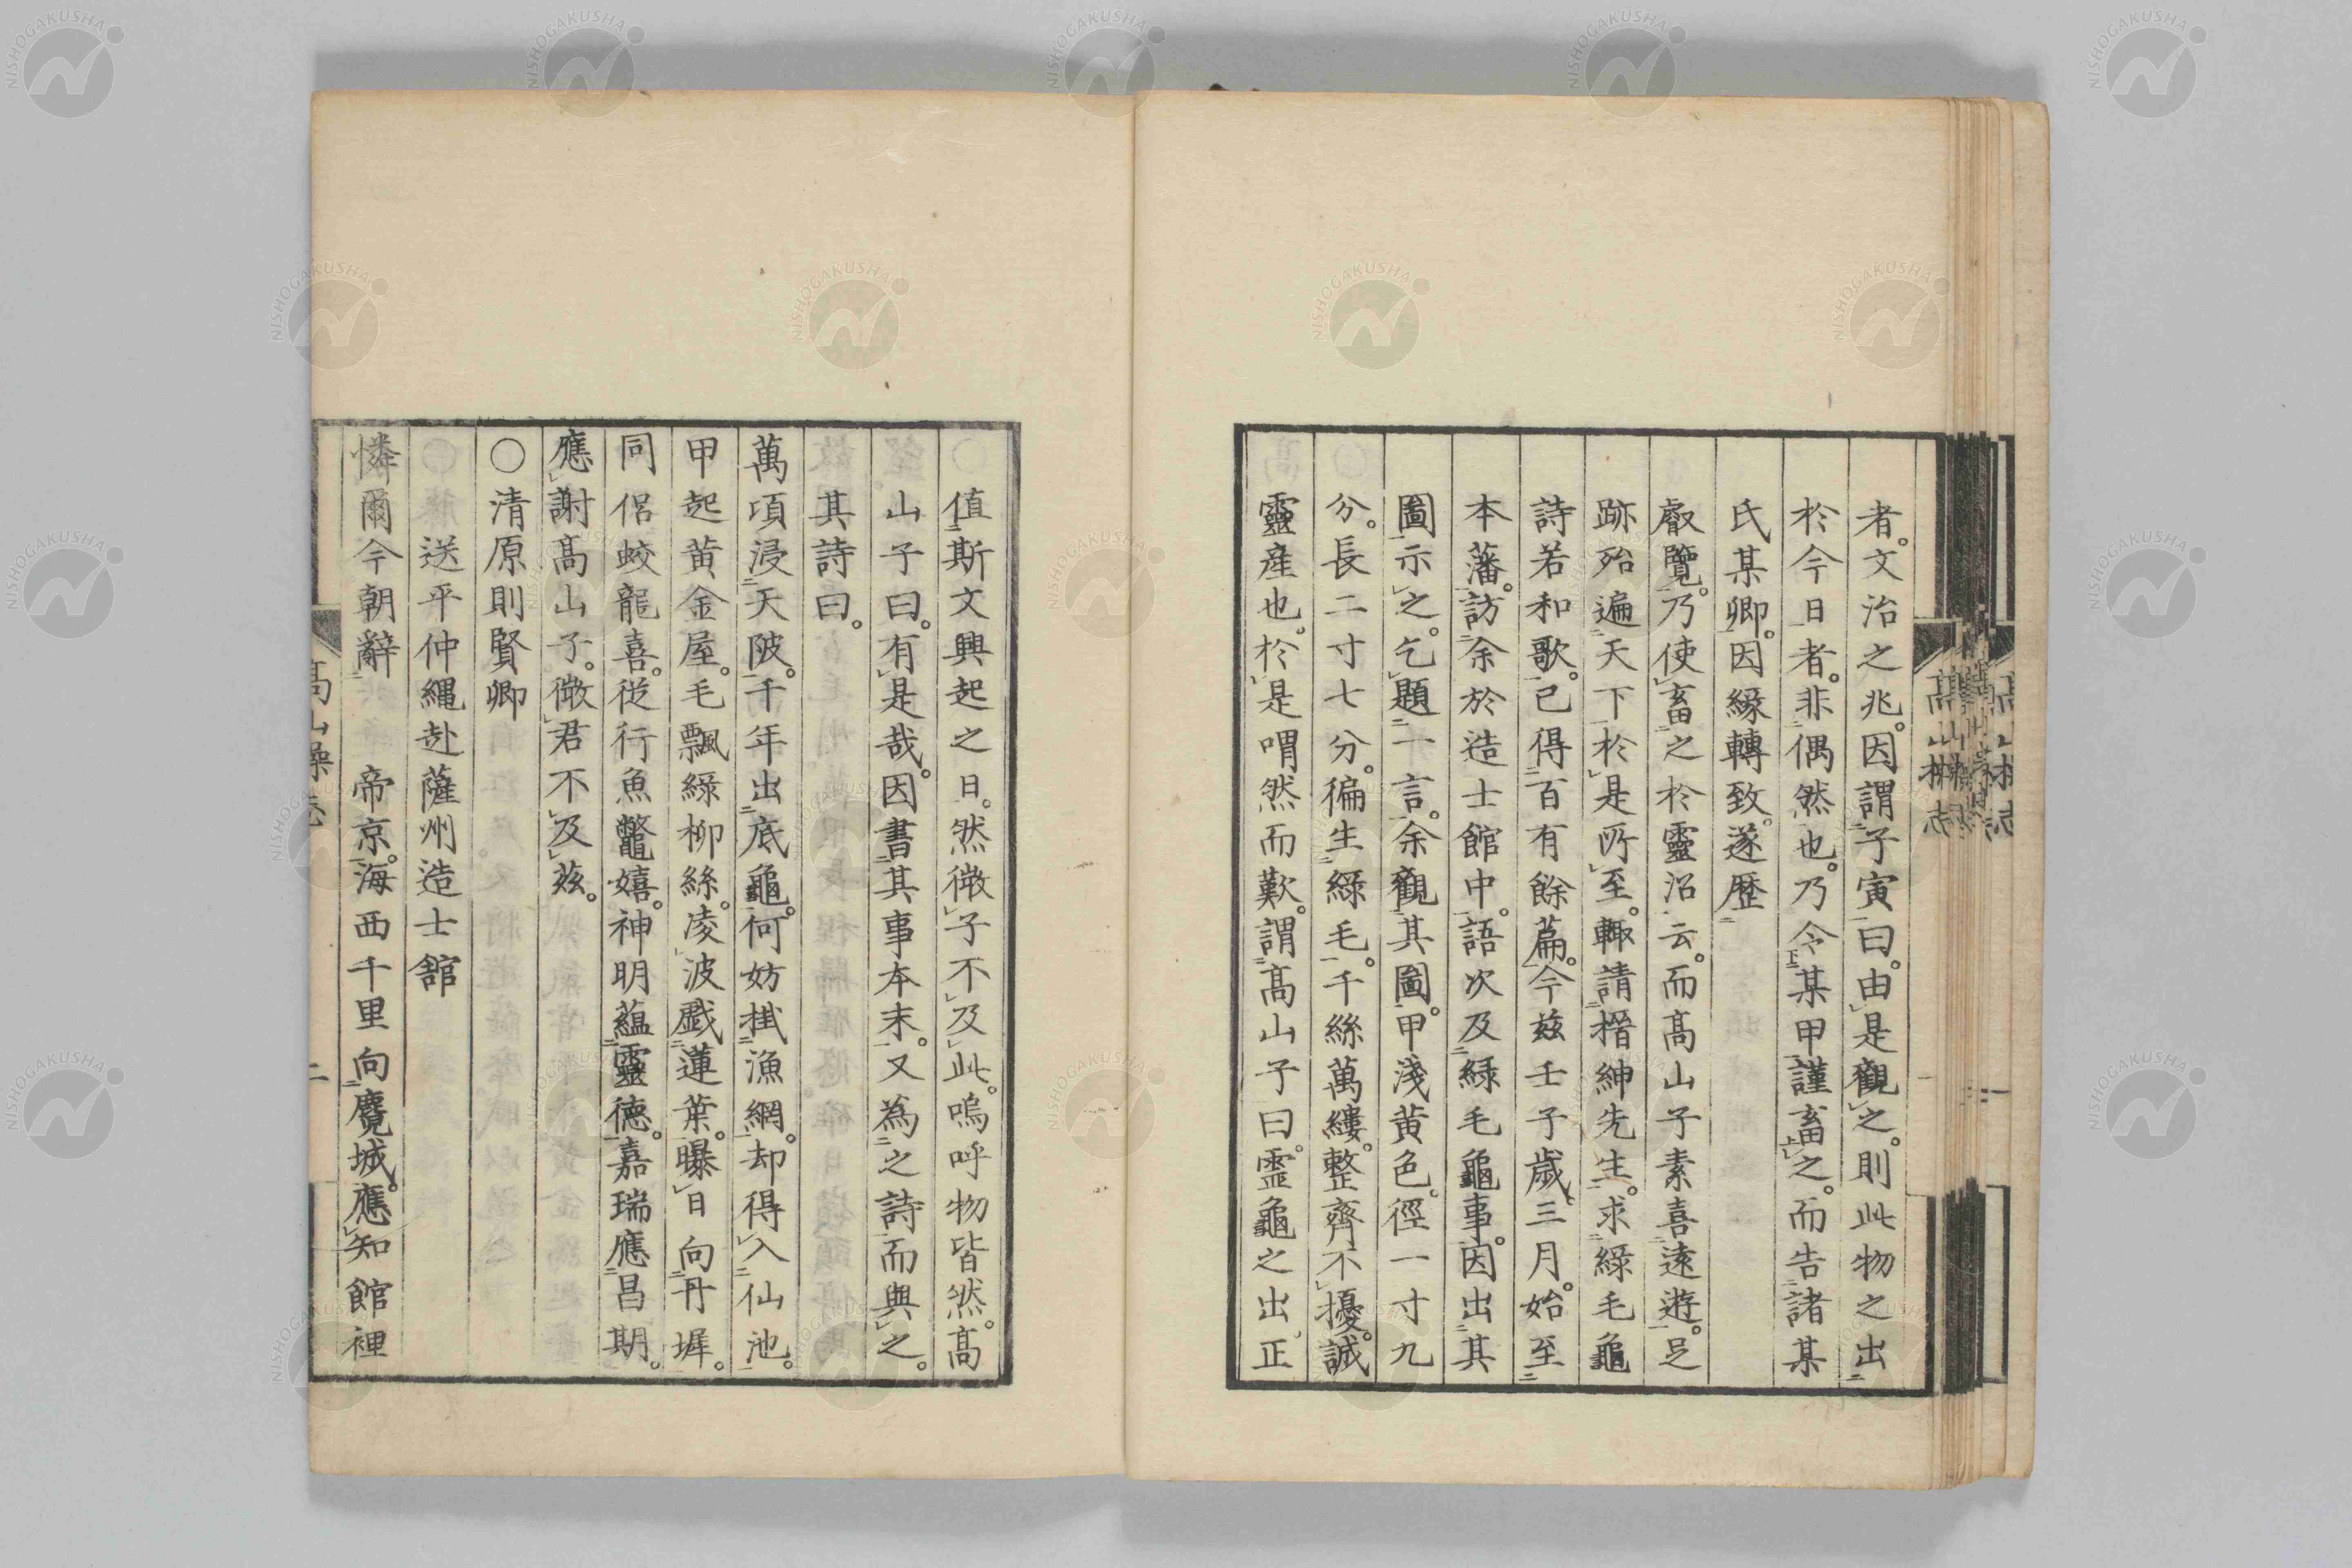 者。文治之兆。因謂子寅曰。由是觀之。則此物之出
於今日者。非偶然也。乃令某甲謹畜之。而告諸某
氏某卿。因縁轉致。遂歴
叡覽。乃使畜之於靈沼云。而髙山子素喜遠遊。足
跡殆遍天下。於是所至。輙請搢紳先生。求緑毛龜
詩若和歌。已得百有餘篇。今茲壬子歳三月。始至
本藩。訪余於造士館中。語次及緑毛龜事。因出其
圖示之。乞題一言。余觀其圖。甲淺黄色。徑一寸九
分。長二寸七分。徧生緑毛。千絲萬縷。整齊不擾。誠
靈産也。於是喟然而歎。謂髙山子曰。霊龜之出正
值斯文興起之日。然微子不及此。嗚呼物皆然。髙
山子曰。有是哉。因書其事本末。又為之詩而與之。
其詩曰。
萬頃浸天陂。千年出底龜。何妨掛漁網。却得入仙池。
甲起黄金屋。毛飄緑柳絲。凌波戯蓮葉。曝日向丹墀。
同侶蛟龍喜。従行魚鼈嬉。神明蘊靈德。嘉瑞應昌期。
應謝髙山子。微君不及茲。
○清原則賢卿
送平仲縄赴薩州造士舘
憐爾今朝辭　帝京。海西千里向麑城。應知館裡
髙山操志
二
NISHOGAKUSHA